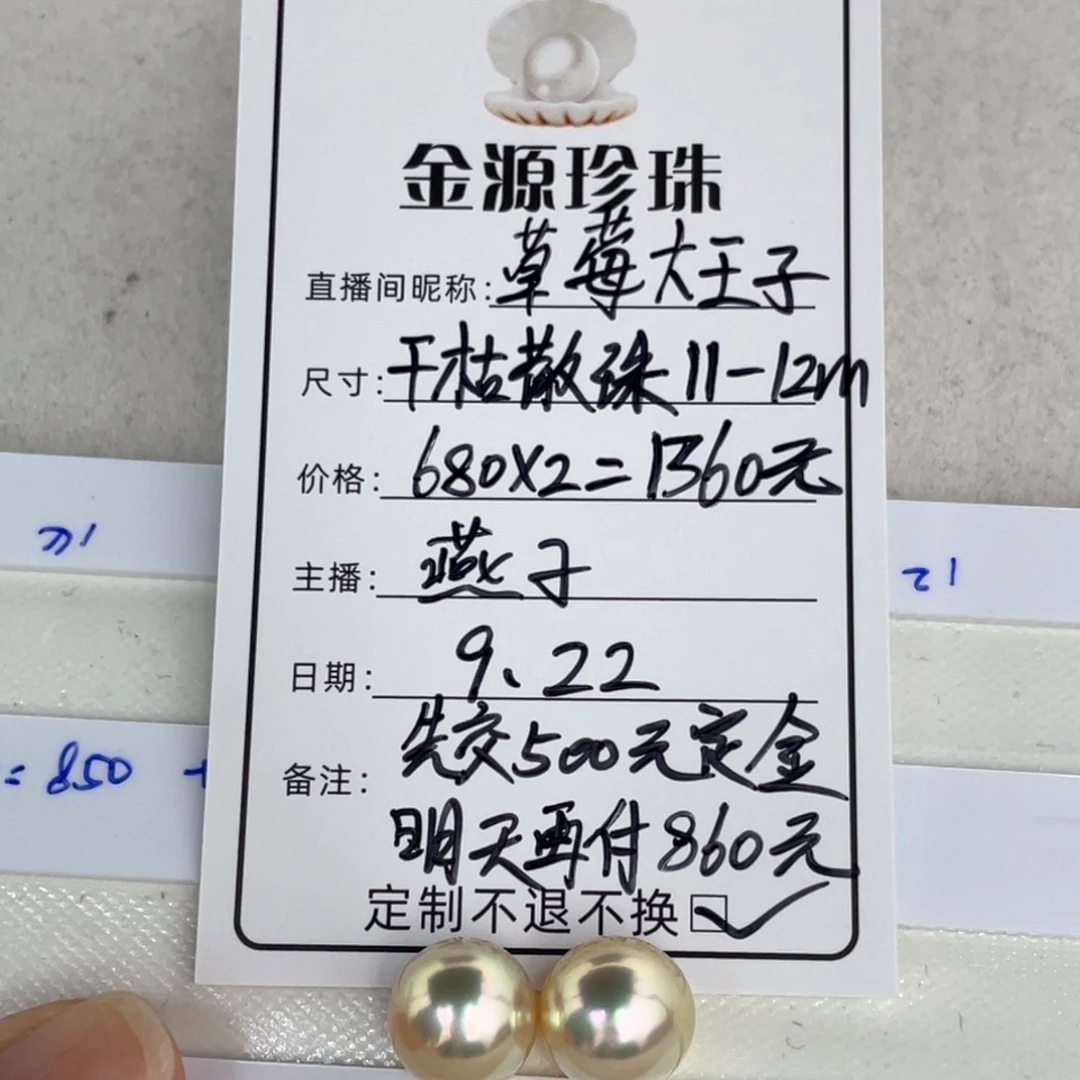 金源珍珠
直播间昵称:草莓大王子
尺寸:干枯散珠11-12m
价格:680X2=1360元
主播:燕子
日期:9.22
备注:先交500元定金
明天再付860元
定制不退不换☑
12
12
=850 +